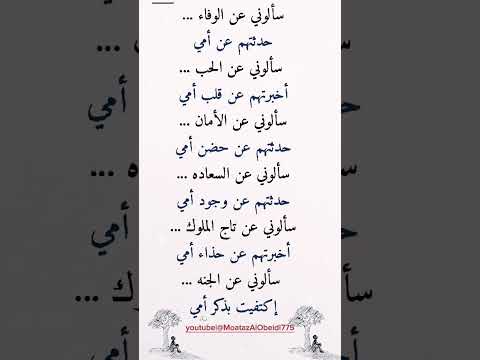 سألوني عن الوفاء ...
حدثتهم عن أمي
سألوني عن الحب ...
أخبرتهم عن قلب أمي
سألوني عن الأمان ...
حدثتهم عن حضن أمي
سألوني عن السعاده ...
حدثتهم عن وجود أمي
سألوني عن تاج الملوك ...
أخبرتهم عن حذاء أمي
سألوني عن الجنه ...
إكتفيت بذكر أمي
youtube@MoatazAlObeidi775